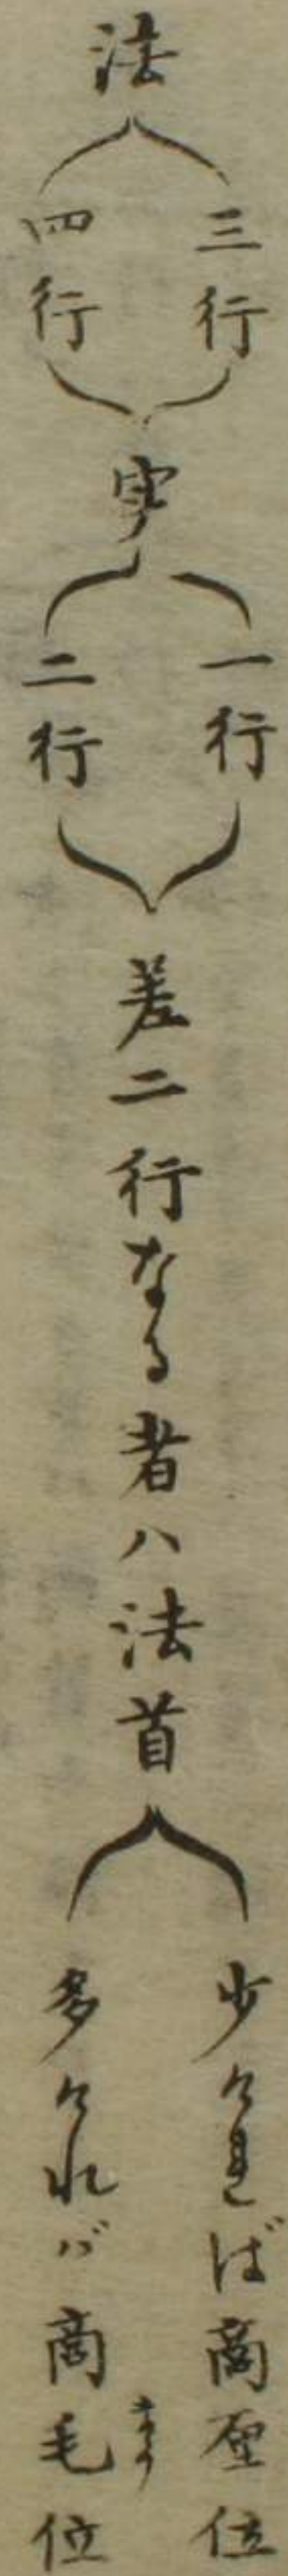 法
三行
四行
実
一行
二行
差二行なる者ハ法首
少ければ商厘位
多けれバ商毛位